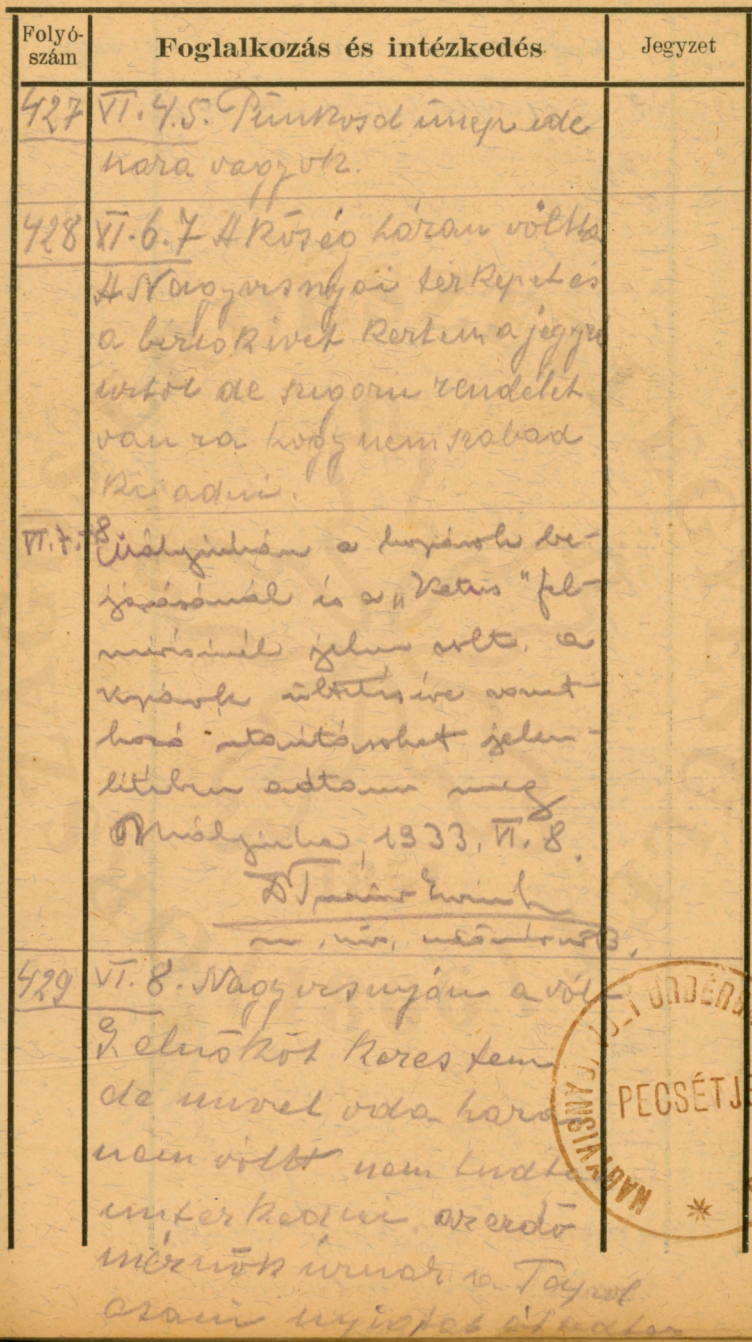 Folyó-
szám
Foglalkozás és intézkedés
Jegyzet
427 VI. 4.5. Pünkosd ünep ide
hara vagyok.
428 VI. 6.7 A Község házan vóltta
A Nagyvisnyói térképet és
a birtokivet kertem a jegyző
urtol de szigoru rendelet
van ra hogy nem szabad
ki adni.
VI. 7.-8 Mályinkán a kopárok be-
járásánál és a „Ketus" fel-
mérésénél jelen volt. a
kopárok ültetésére vonat-
kozó utasításokat jelen-
létében adtam meg
Mályinka, 1933. VI. 8.
m. kir.
429 VI. 8. Nagyvisnyón a vólt
elnököt kerestem
de mivel oda haza
nem vóltt nem tudtam
intezkedni. az erdő
mérnök urnak a
PECSÉTJE